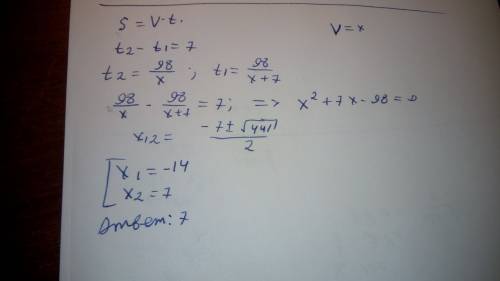 S = V·t.
V = x
t₂ - t₁ = 7
t₂ = 98/x ; t₁ = 98/(x+7)
98/x - 98/(x+7) = 7; => x² + 7x - 98 = 0
x₁₂ = (-7 ± √441)/2
[ x₁ = -14
x₂ = 7
Ответ: 7